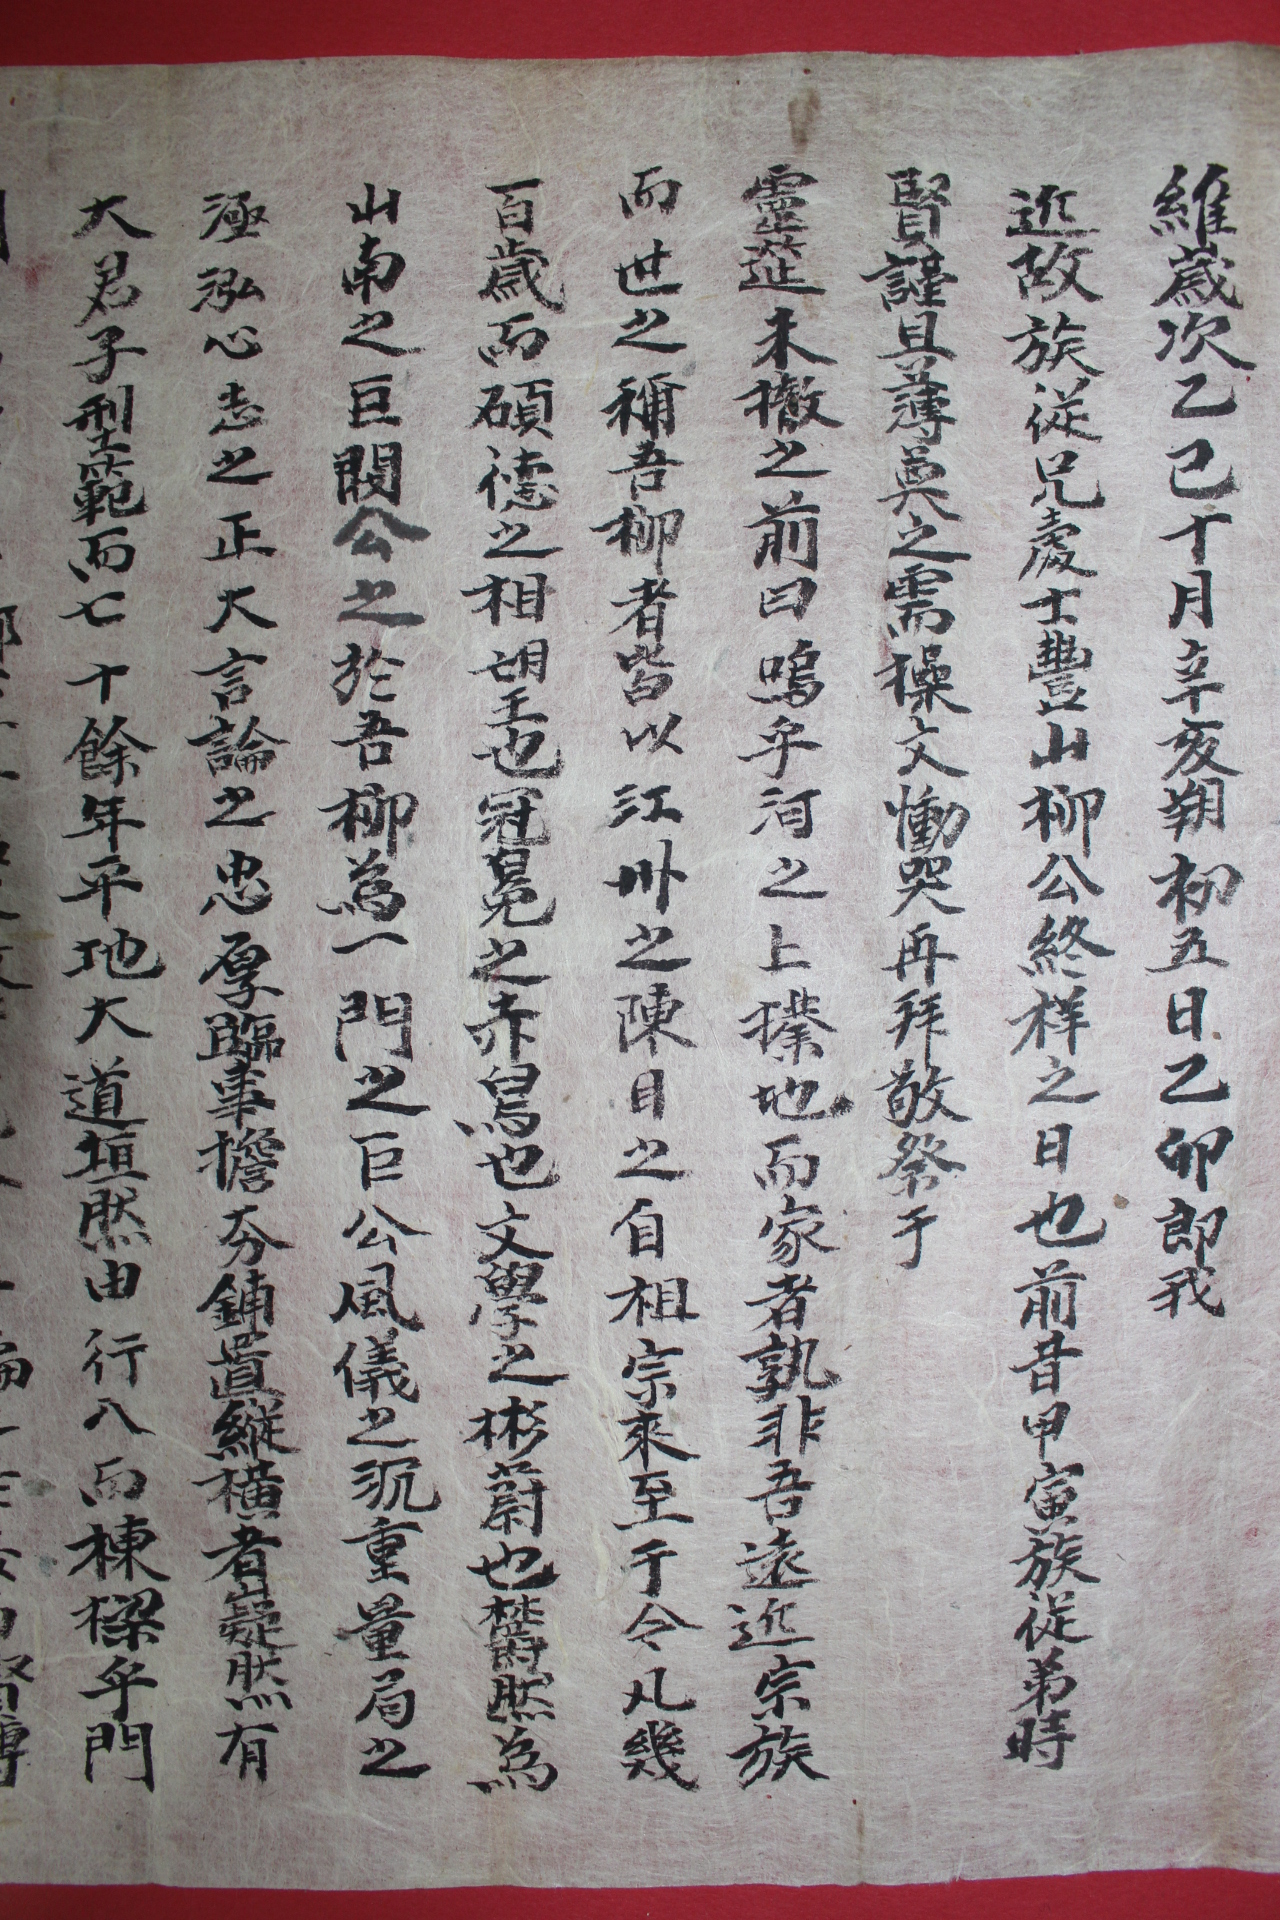 維歲次乙巳十月辛亥朔初五日乙卯郎我
近故族從兄處士豐山柳公終祥之日也前昔甲寅族從弟時
賢謹具薄奠之需而操文慟哭再拜敬祭于
靈筵未撤之前曰嗚乎河之上撲地而家者孰非吾遠近宗族
而世之稱吾柳者皆以江州之陳目之自祖宗來至于今凡幾
百歲而碩德之相望也冠冕之赤舃也文學之彬蔚也欝然為
山南之巨閥公之於吾柳為一門之巨公風儀之沉重量局之
極泓心志之正大言論之忠厚臨事擔夯鋪置縱橫者嶷然有
大君子型範而七十餘年平地大道坦然由行八而棟樑乎門